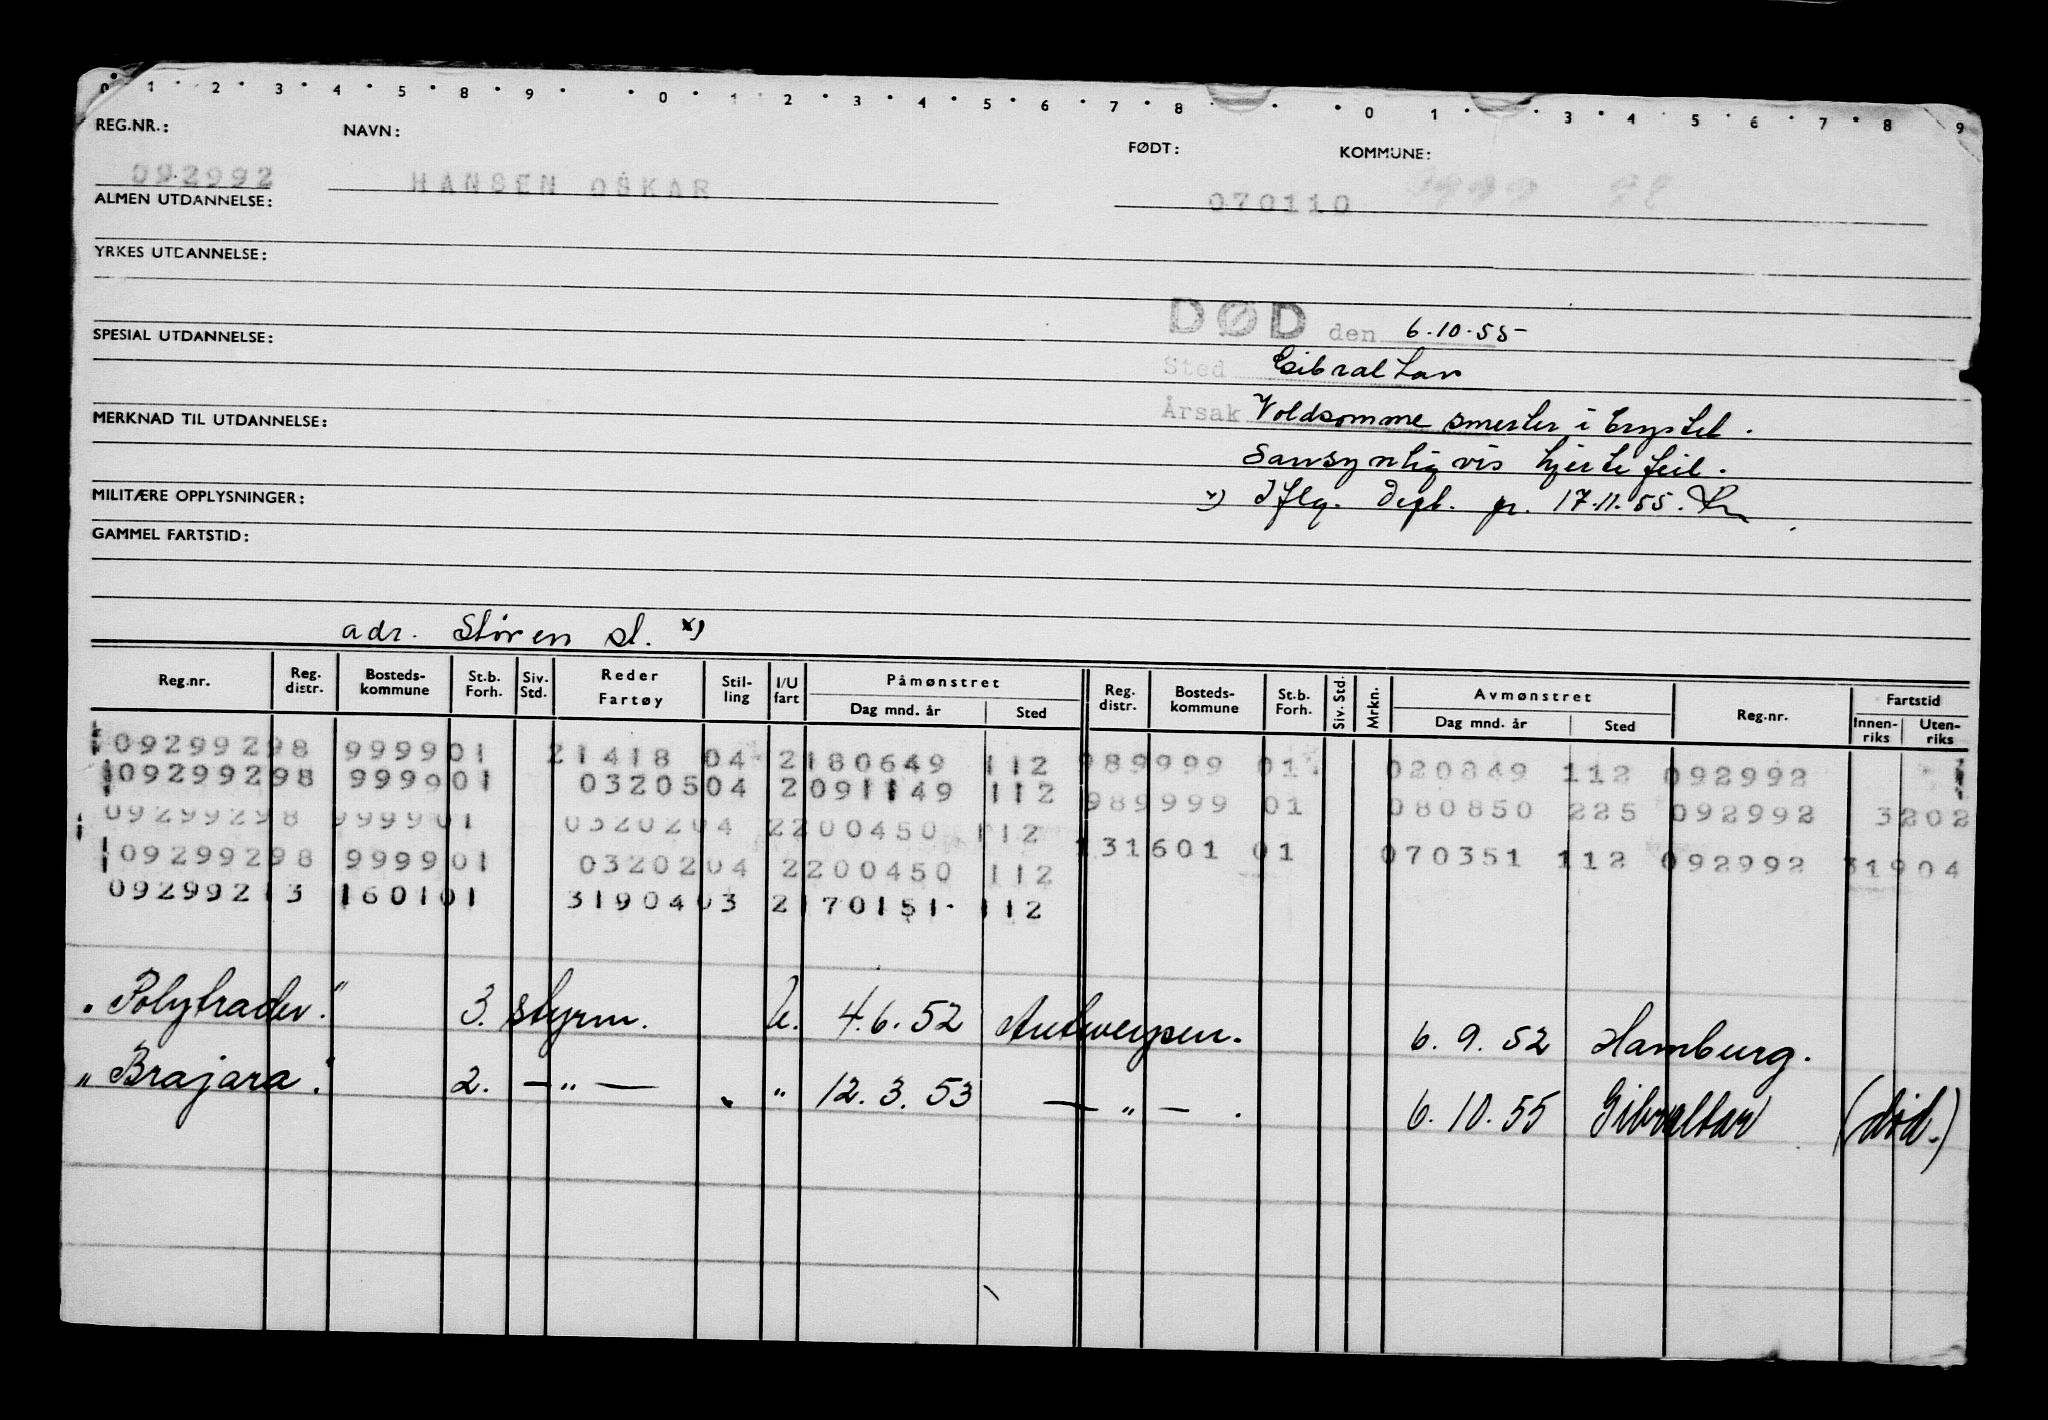 0 1 2 3 4 5 8 9 0 1 2 3 4 5 6 7 8 0 1 3 4 5 6 7 8 9
REG.NR.: NAVN: FØDT: KOMMUNE:
092992 HANSEN OSKAR 070110
ALMEN UTDANNELSE:
YRKES UTDANNELSE:
DØD den 6.10.55
SPESIAL UTDANNELSE:
Sted Gibraltar
Årsak Voldsomme smerter i brystet.
MERKNAD TIL UTDANNELSE:
Sansynligvis hjertefeil.
MILITÆRE OPPLYSNINGER:
x) Iflg. Degb. pr. 17.11.55.
GAMMEL FARTSTID:
adr. Støren st. x)
Reg.nr. Reg. distr. Bosteds-kommune St.b. Forh. Siv. Std. Reder Fartøy Stil-ling I/U fart Påmønstret Dag mnd. år Sted Reg. distr. Bosteds-kommune St.b. Forh. Siv. Std. Mrkn. Avmønstret Dag mnd. år Sted Reg.nr. Fartstid Innen-riks Uten-riks
09299298 999901 21418 04 2180649 112 989999 01 020849 112 092992
09299298 999901 0320504 2091149 112 989999 01 080850 225 092992 3202
09299298 999901 0320204 2200450 112
09299298 999901 0320204 2200450 112 131601 01 070351 112 092992 31904
09299213 160101 3190403 2170151 112
"Polytrader." 3. styrm. U. 4.6.52 Antwerpen. 6.9.52 Hamburg.
"Brajara." 2. —"— " 12.3.53 —"—. 6.10.55 Gibraltar (død.)